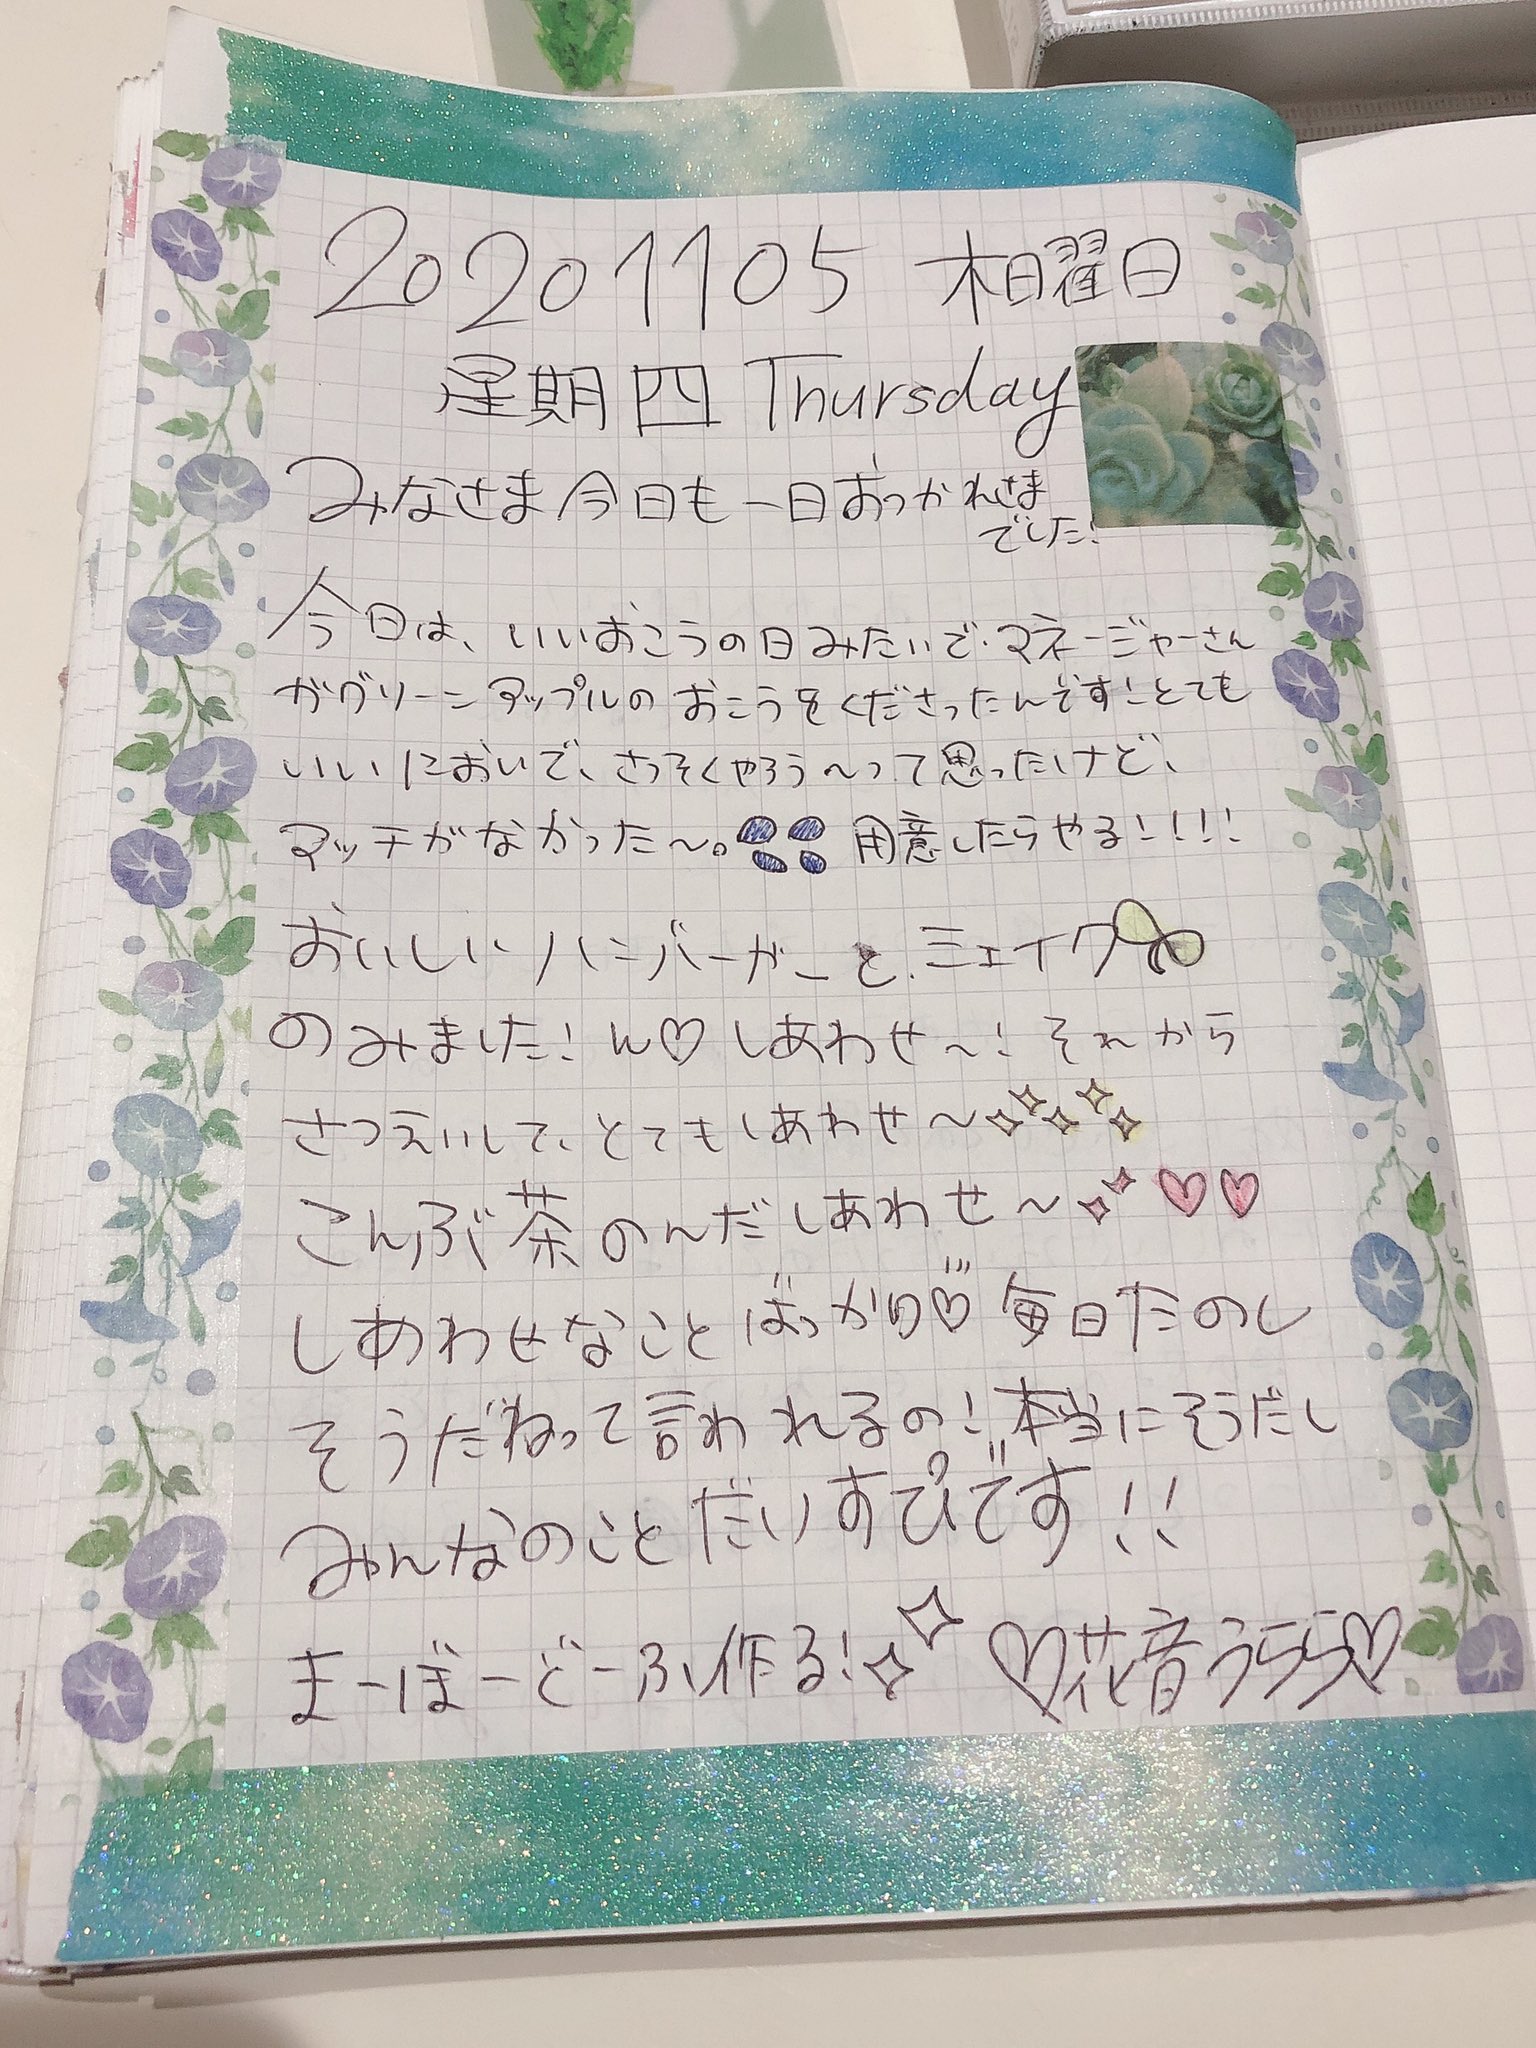 20201105 木曜日
星期四 Thursday
みなさま今日も一日おつかれさま
でした!
今日は、いいおこうの日みたいで、マネージャーさん
がグリーンアップルのおこうをくださったんです!とても
いいにおいで、さっそくやろう〜って思ったけど、
マッチがなかった〜。用意したらやる!!!!
おいしいハンバーガーと、シェイク
のみました!ん♡しあわせ〜!それから
さつえいして、とてもしあわせ〜
こんぶ茶のんだしあわせ〜♡♡
しあわせなことばっかり♡毎日たのし
そうだねって言われるの!本当にそうだし
みんなのことだいすぴです!!
まーぼーどーふ作る! ♡花音うらら♡